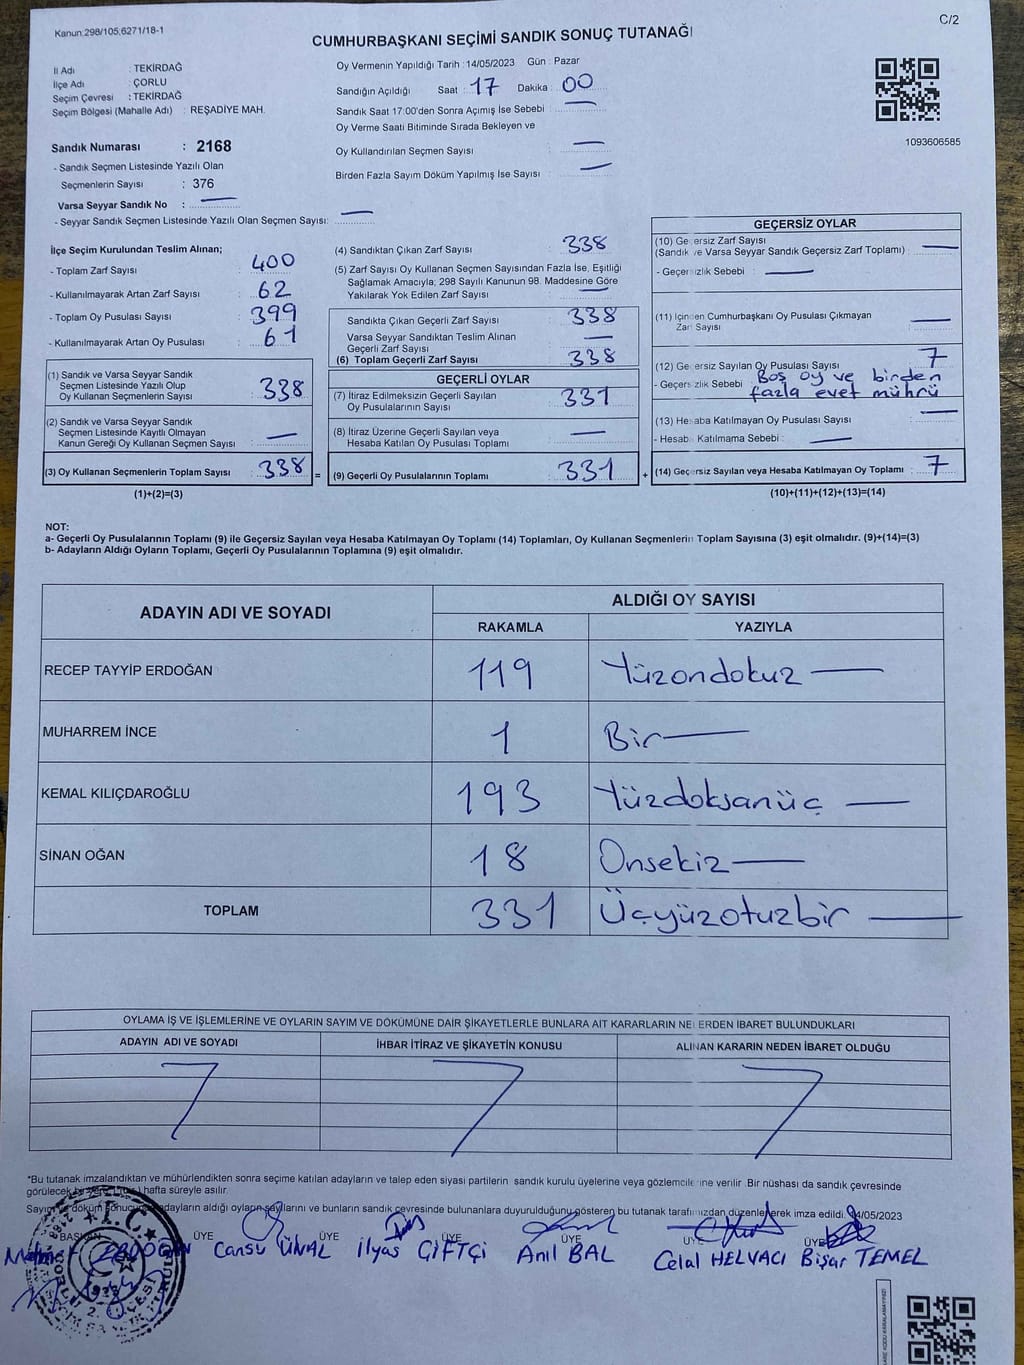 Kanun:298/105,6271/18-1
C/2
CUMHURBAŞKANI SEÇİMİ SANDIK SONUÇ TUTANAĞI
İl Adı : TEKİRDAĞ
İlçe Adı : ÇORLU
Seçim Çevresi : TEKİRDAĞ
Seçim Bölgesi (Mahalle Adı) : REŞADİYE MAH.
Oy Vermenin Yapıldığı Tarih :14/05/2023 Gün : Pazar
Sandığın Açıldığı Saat : 17 Dakika : 00
Sandık Saat 17:00'den Sonra Açımış İse Sebebi : —
Oy Verme Saati Bitiminde Sırada Bekleyen ve
Oy Kullandırılan Seçmen Sayısı : —
Birden Fazla Sayım Döküm Yapılmış İse Sayısı : —
1093606585
Sandık Numarası : 2168
- Sandık Seçmen Listesinde Yazılı Olan
Seçmenlerin Sayısı : 376
Varsa Seyyar Sandık No : —
- Seyyar Sandık Seçmen Listesinde Yazılı Olan Seçmen Sayısı: —
İlçe Seçim Kurulundan Teslim Alınan;
- Toplam Zarf Sayısı : 400
- Kullanılmayarak Artan Zarf Sayısı : 62
- Toplam Oy Pusulası Sayısı : 399
- Kullanılmayarak Artan Oy Pusulası : 61
(1) Sandık ve Varsa Seyyar Sandık
Seçmen Listesinde Yazılı Olup
Oy Kullanan Seçmenlerin Sayısı : 338
(2) Sandık ve Varsa Seyyar Sandık
Seçmen Listesinde Kayıtlı Olmayan
Kanun Gereği Oy Kullanan Seçmen Sayısı : —
(3) Oy Kullanan Seçmenlerin Toplam Sayısı : 338
(1)+(2)=(3)
(4) Sandıktan Çıkan Zarf Sayısı : 338
(5) Zarf Sayısı Oy Kullanan Seçmen Sayısından Fazla İse, Eşitliği
Sağlamak Amacıyla; 298 Sayılı Kanunun 98. Maddesine Göre
Yakılarak Yok Edilen Zarf Sayısı : —
Sandıkta Çıkan Geçerli Zarf Sayısı : 338
Varsa Seyyar Sandıktan Teslim Alınan
Geçerli Zarf Sayısı : —
(6) Toplam Geçerli Zarf Sayısı : 338
GEÇERLİ OYLAR
(7) İtiraz Edilmeksizin Geçerli Sayılan
Oy Pusulalarının Sayısı : 331
(8) İtiraz Üzerine Geçerli Sayılan veya
Hesaba Katılan Oy Pusulası Toplamı : —
= (9) Geçerli Oy Pusulalarının Toplamı : 331
GEÇERSİZ OYLAR
(10) Geçersiz Zarf Sayısı
(Sandık ve Varsa Seyyar Sandık Geçersiz Zarf Toplamı) : —
- Geçersizlik Sebebi : —
(11) İçinden Cumhurbaşkanı Oy Pusulası Çıkmayan
Zarf Sayısı : —
(12) Geçersiz Sayılan Oy Pusulası Sayısı : 7
- Geçersizlik Sebebi : Boş oy ve birden
fazla evet mührü
(13) Hesaba Katılmayan Oy Pusulası Sayısı : —
- Hesaba Katılmama Sebebi : —
+ (14) Geçersiz Sayılan veya Hesaba Katılmayan Oy Toplamı : 7
(10)+(11)+(12)+(13)=(14)
NOT:
a- Geçerli Oy Pusulalarının Toplamı (9) ile Geçersiz Sayılan veya Hesaba Katılmayan Oy Toplamı (14) Toplamları, Oy Kullanan Seçmenlerin Toplam Sayısına (3) eşit olmalıdır. (9)+(14)=(3)
b- Adayların Aldığı Oyların Toplamı, Geçerli Oy Pusulalarının Toplamına (9) eşit olmalıdır.
ADAYIN ADI VE SOYADI
ALDIĞI OY SAYISI
RAKAMLA YAZIYLA
RECEP TAYYİP ERDOĞAN 119 Yüzondokuz —
MUHARREM İNCE 1 Bir —
KEMAL KILIÇDAROĞLU 193 Yüzdoksanüç —
SİNAN OĞAN 18 Onsekiz —
TOPLAM 331 Üçyüzotuzbir —
OYLAMA İŞ VE İŞLEMLERİNE VE OYLARIN SAYIM VE DÖKÜMÜNE DAİR ŞİKAYETLERLE BUNLARA AİT KARARLARIN NELERDEN İBARET BULUNDUKLARI
ADAYIN ADI VE SOYADI İHBAR İTİRAZ VE ŞİKAYETİN KONUSU ALINAN KARARIN NEDEN İBARET OLDUĞU
*Bu tutanak imzalandıktan ve mühürlendikten sonra seçime katılan adayların ve talep eden siyasi partilerin sandık kurulu üyelerine veya gözlemcilerine verilir. Bir nüshası da sandık çevresinde
görülecek bir yere (bir) hafta süreyle asılır.
Sayım ve döküm sonucunda adayların aldığı oyların sayılarını ve bunların sandık çevresinde bulunanlara duyurulduğunu gösteren bu tutanak tarafımızdan düzenlenerek imza edildi. 14/05/2023
BAŞKAN ÜYE ÜYE ÜYE ÜYE ÜYE ÜYE
Cansu ÜNAL İlyas ÇİFTÇİ Anıl BAL Celal HELVACI Bişar TEMEL
T.C.